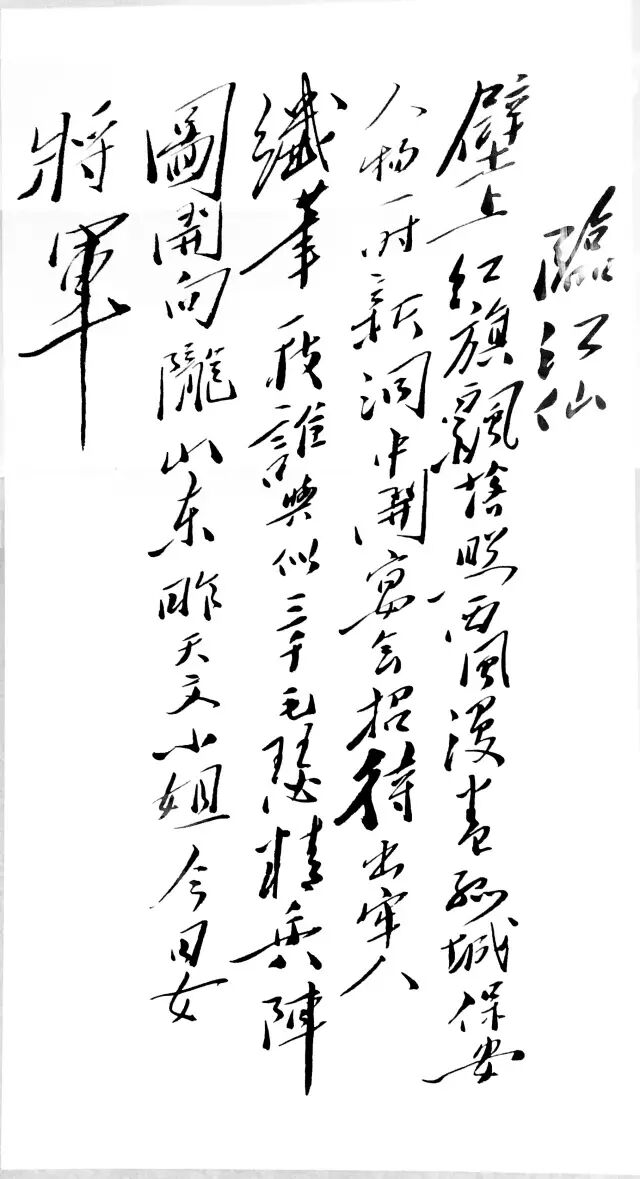 臨江仙
壁上红旗飄落照西風漫卷孤城保安
人物一时新洞中開宴会招待出牢人
纖筆一枝誰與似三千毛瑟精兵陣
圖開向隴山东昨天文小姐今日女
將軍